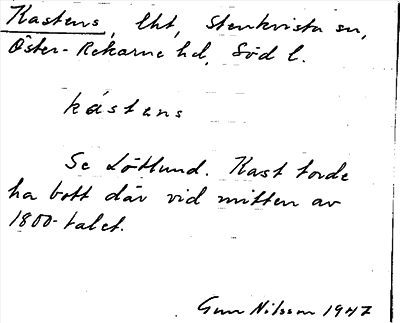 Kastens, lht, Stenkvista sn,
Öster-Rekarne hd, Söd l.
kástens
Se Lötlund. Kast torde
ha bott där vid mitten av
1800-talet.
Gun Nilsson 1947